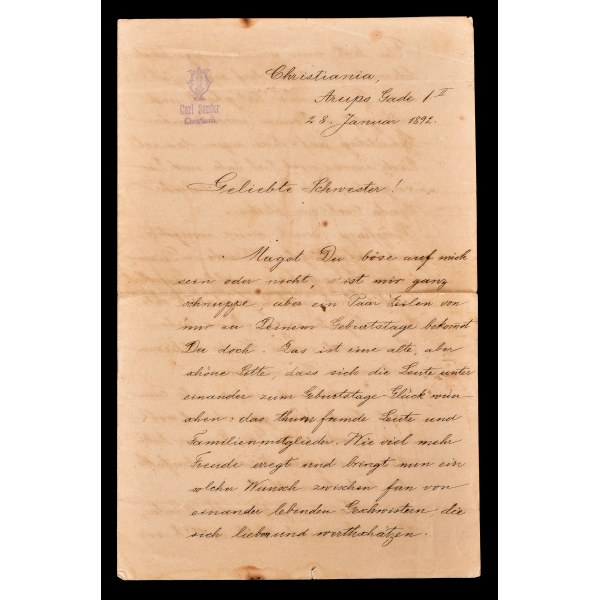 Christiania,
Arups Gade 1 II
28. Januar 1892.
Carl Sander
Christiania
Geliebte Schwester!
Magst Du böse auf mich
sein oder nicht, 's ist mir ganz
schnuppe, aber ein Paar Zeilen von
mir zu Deinem Geburtstage bekomst
Du doch. Das ist eine alte, aber
schöne Sitte, dass sich die Leute unter
einander zum Geburtstage Glück wün-
schen; das thun fremde Leute und
Familienmitglieder. Wie viel mehr
Freude erregt und bringt nun ein
solcher Wunsch zwischen fern von
einander lebenden Geschwistern die
sich lieben und werthschätzen.